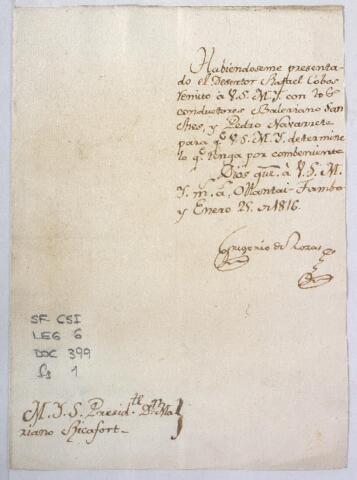 Habiendoseme presenta-
do el Desertor Rafael Cobos
remito à V.S.M.Y con los
conductores Baleriano San
ches, y Pedro Navarrete
para q.e V.S.M.Y. determine
lo q.e tenga por combeniente
Dios gue. à V.S.M.
Y. m. a. Ollantai-Tambo
y Enero 25. de 1816.
Gregorio de Rozas
SF CSI
LEG 6
DOC 399
fs 1
M.Y.S. Presid.te D.n Ma
riano Ricafort-